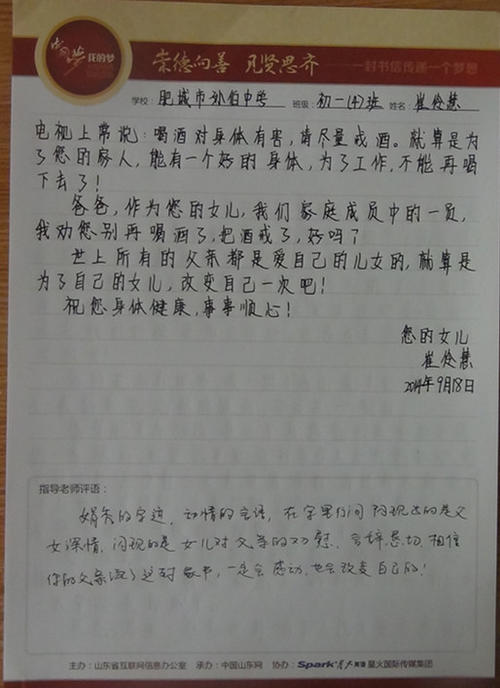 我的梦
崇德向善 见贤思齐
一封书信传递一个梦想
学校：肥城市孙伯中学 班级：初一(4)班 姓名：崔伶慧
电视上常说：喝酒对身体有害，请尽量戒酒。就算是为
了您的家人，能有一个好的身体，为了工作，不能再喝
下去了！
爸爸，作为您的女儿，我们家庭成员中的一员，
我劝您别再喝酒了，把酒戒了，好吗？
世上所有的父亲都是爱自己的儿女的，就算是
为了自己的女儿，改变自己一次吧！
祝您身体健康，事事顺心！
您的女儿
崔伶慧
2014年9月18日
指导老师评语：
娟秀的字迹，动情的言语，在字里行间闪现出的是父
女深情，闪现的是女儿对父亲的劝慰，言辞恳切，相信
你的父亲读了这封家书，一定会感动，也会改变自己的！
主办：山东省互联网信息办公室 承办：中国山东网 协办：Spark 星火英语 星火国际传媒集团